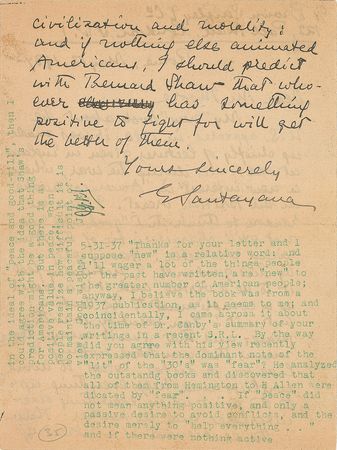 civilization and morality:
and if nothing else animated
Americans, I should predict
with Bernard Shaw that who-
ever has something
positive to fight for will get
the better of them.
Yours sincerely
G Santayana
5-31-37 "Thanks for your letter and I
suppose "new" is a relative word: and
I'll wager a lot of the things people
of the past have written, are "new" to
the greater number of American people;
anyway, I believe the book was from a
1937 publication, as it seems to me; and
coincidentally, I came across it about
the time of Dr. Canby's summary of your
writing in a recent S.R.L. By the way
did you agree with his view recently
expressed that the dominant note of the
"lit" of the "30's" was "fear"? He analyzed
the outstandg books and discovered that
all of them from Hemington to H Allen were
dicated by "fear". . . . If "peace" did
not mean anything positive, and only a
passive desire to avoid conflicts, and the
desire merely to "help everything . . . "
and if there were nothing active
in the ideal of "peace and good-will", then I
could agree with the idea that Shaw's
prediction might be a good thing
for Americans. But there is a
positive value in peace, when
one realizes how difficult it is
35